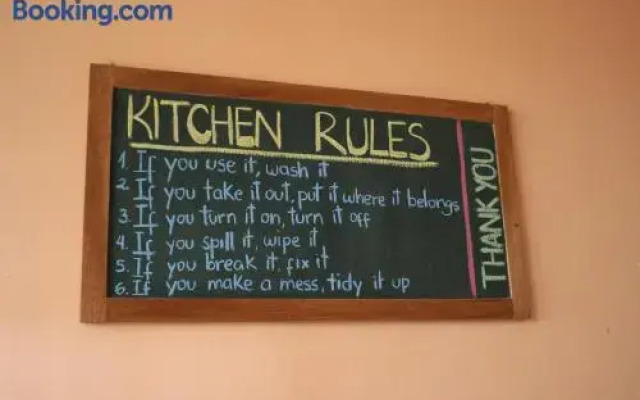 Booking.com
KITCHEN RULES
1. If you use it, wash it
2. If you take it out, put it where it belongs
3. If you turn it on, turn it off
4. If you spill it, wipe it
5. If you break it, fix it
6. If you make a mess, tidy it up
THANK YOU